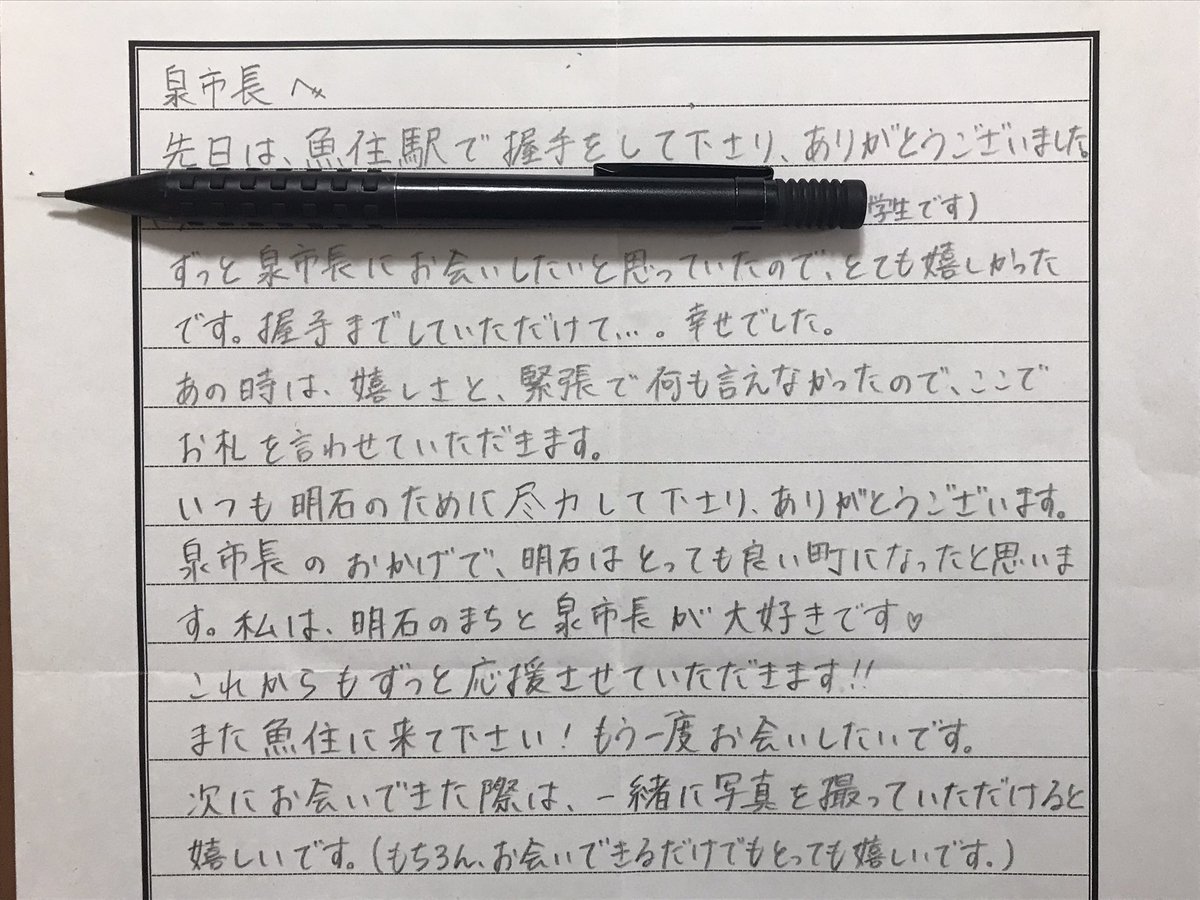 泉市長へ
先日は、魚住駅で握手をして下さり、ありがとうございました。
学生です)
ずっと泉市長にお会いしたいと思っていたので、とても嬉しかった
です。握手までしていただけて…。幸せでした。
あの時は、嬉しさと、緊張で何も言えなかったので、ここで
お礼を言わせていただきます。
いつも明石のために尽力して下さり、ありがとうございます。
泉市長のおかげで、明石はとっても良い町になったと思いま
す。私は、明石のまちと泉市長が大好きです♡
これからもずっと応援させていただきます!!
また魚住に来て下さい!もう一度お会いしたいです。
次にお会いできた際は、一緒に写真を撮っていただけると
嬉しいです。(もちろん、お会いできるだけでもとっても嬉しいです。)